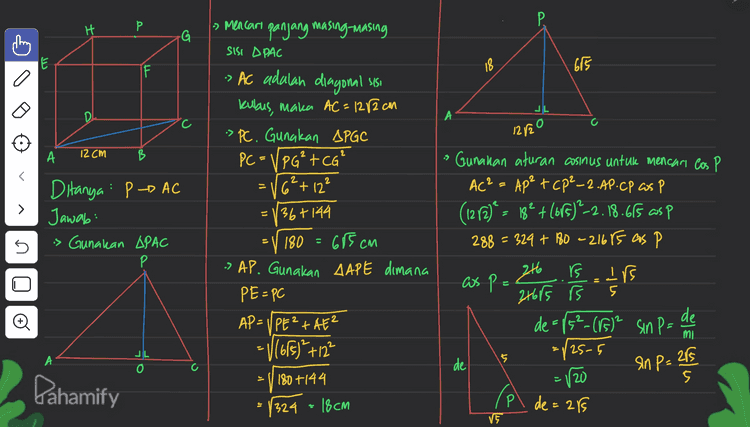 H P G
E F
D C
A 12 cm B
Ditanya : P → AC
Jawab :
> Gunakan △PAC
P
A O C
Pahamify
> Mencari panjang masing-masing
sisi △PAC
> AC adalah diagonal sisi
kubus, maka AC = 12√2 cm
> PC. Gunakan △PGC
PC = √PG² + CG²
= √6² + 12²
= √36 + 144
= √180 = 6√5 cm
> AP. Gunakan △APE dimana
PE = PC
AP = √PE² + AE²
= √(6√5)² + 12²
= √180 + 144
= √324 = 18 cm
P
18 6√5
A O C
12√2
> Gunakan aturan cosinus untuk mencari cos P
AC² = AP² + CP² - 2.AP.CP cos P
(12√2)² = 18² + (6√5)² - 2.18.6√5 cos P
288 = 324 + 180 - 216√5 cos P
cos P = 216/216√5 . √5/√5 = 1/5 √5
de = √5² - (√5)² sin P = de/mi
= √25 - 5 sin P = 2√5/5
= √20
de = 2√5
de 5
P
√5